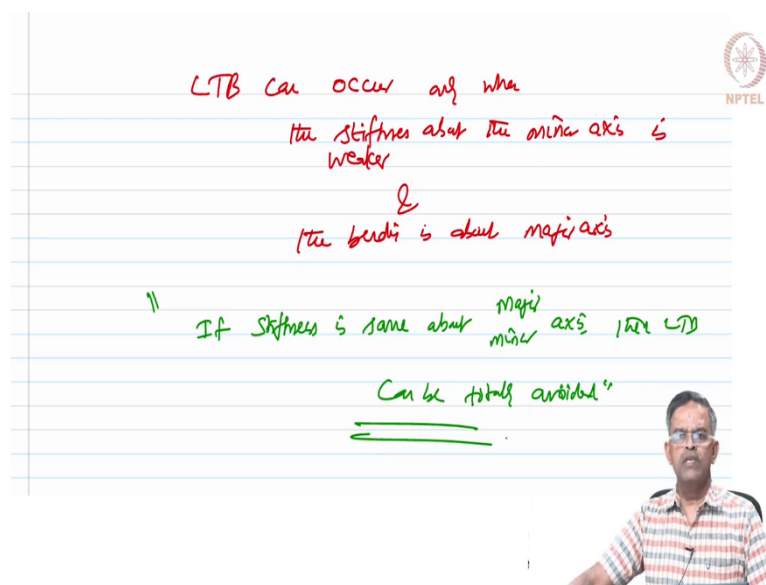 LTB can occur only when
the stiffness about the minor axis is
weaker
&
the bending is about major axis
"If stiffness is same about major
minor axis, then LTB
can be totally avoided"
NPTEL